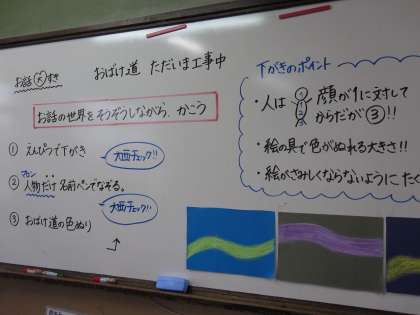 お話 大 すき
おばけ道 ただいま工事中
お話の世界をそうぞうしながら、かこう
① えんぴつで下がき
大西チェック!!
② 人物だけ名前ペンでなぞる。
大西チェック!!
③ おばけ道の色ぬり
下がきのポイント
・人は 顔が1に対して
からだが③!!
・絵の具で色がぬれる大きさ!!
・絵がさみしくならないように、たく